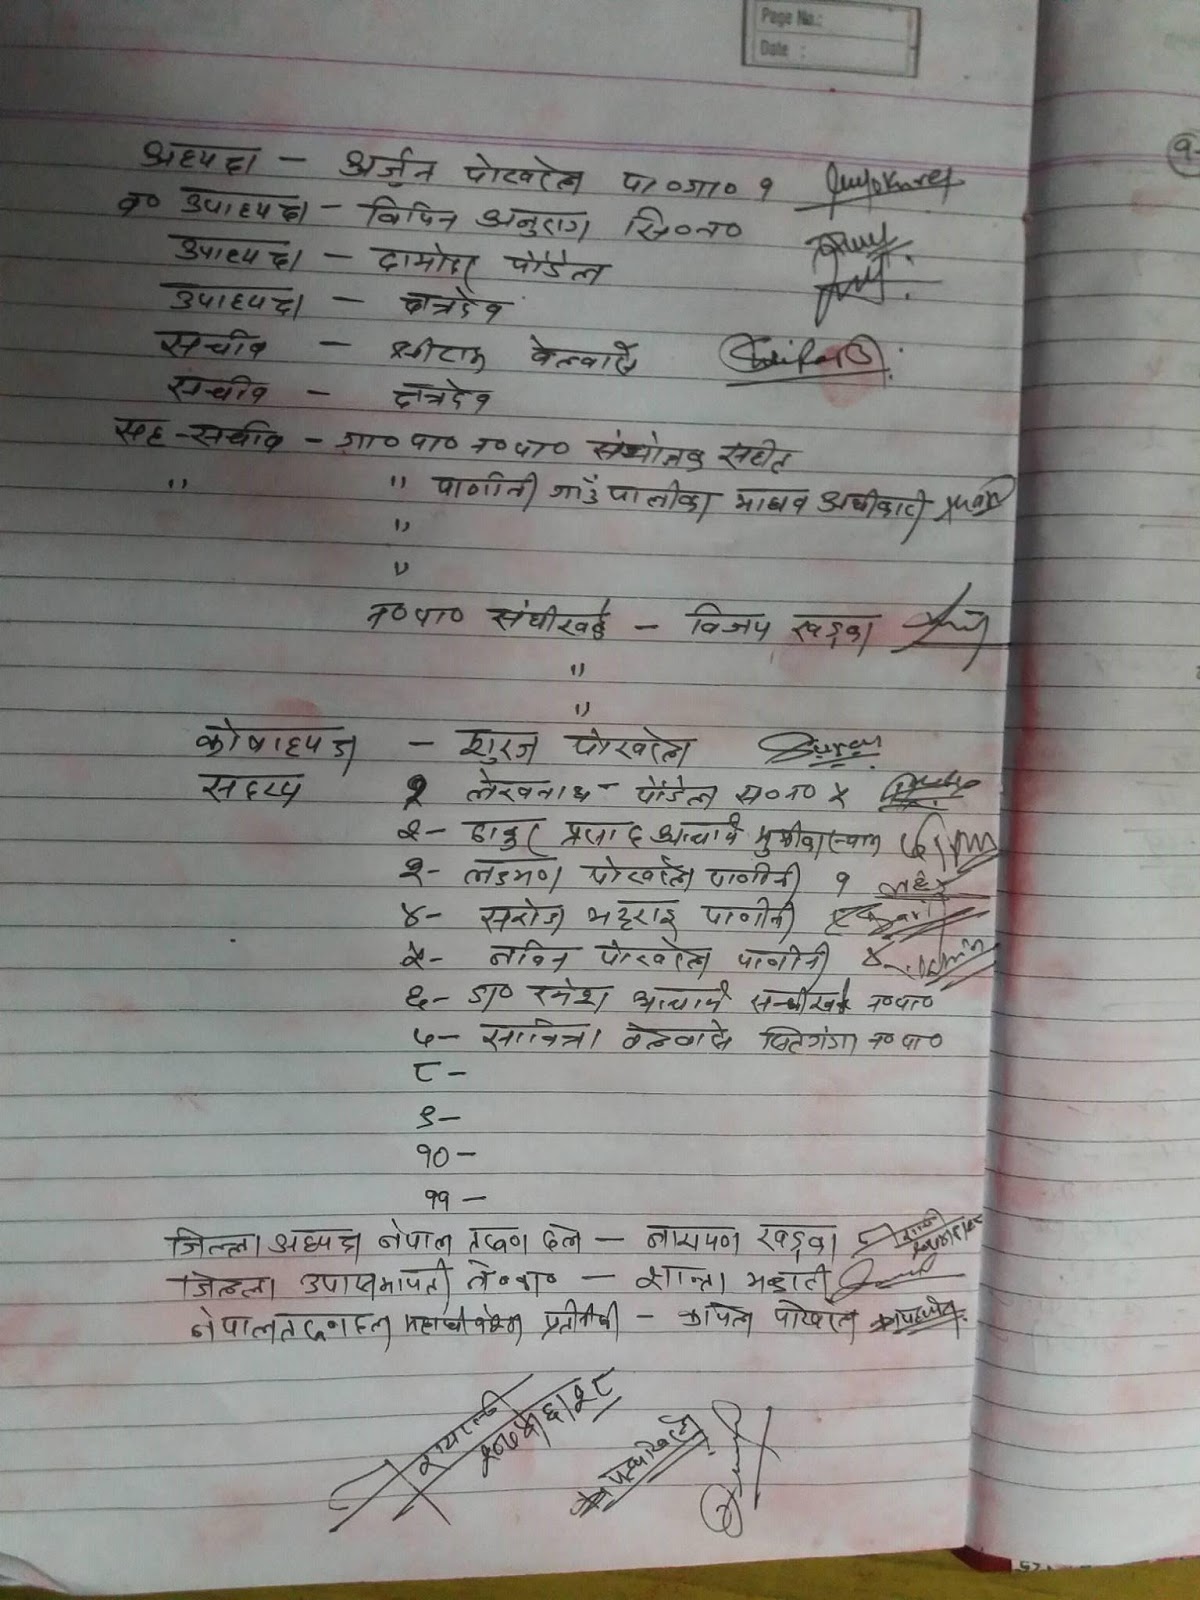 Page No.:
Date :
अध्यक्ष - अर्जुन पोखरेल पा०गा० १
ब० उपाध्यक्ष - विपिन अनुराग सि०न०
उपाध्यक्ष - दामोदर पौडेल
उपाध्यक्ष - क्षत्रदेव
सचीव - श्रीराम वेल्वासे
सचीव - क्षत्रदेव
सह-सचीव - गा०पा० न०पा० संयोजक सहीत
" " पाणीनी गाउँपालीका माधव अधीकारी
"
"
न०पा० संधीखर्क - विजय खड्का
"
"
कोषाध्यक्ष - शुरज पोखरेल
सदस्य १ लेखनाथ - पौडेल स०न० ४
२- ठाकुर प्रसाद आचार्य भुमीकास्थान
३- लक्ष्मण पोखरेल पाणीनी १
४- सरोज भट्टराई पाणीनी
५- नविन पोखरेल पाणीनी
६- डा० रमेश आचार्य सन्धीखर्क न०पा०
७- सावित्रा वेल्वासे सितगंगा न०पा०
८-
९-
१०-
११-
जिल्ला अध्यक्ष नेपाल तरुण दल - नारायण खड्का
जिल्ला उपासभापती ने०का० - शान्ता भण्डारी
नेपाल तरुण दल महाधीवेशन प्रतीनीधी - कपिल पोखरेल